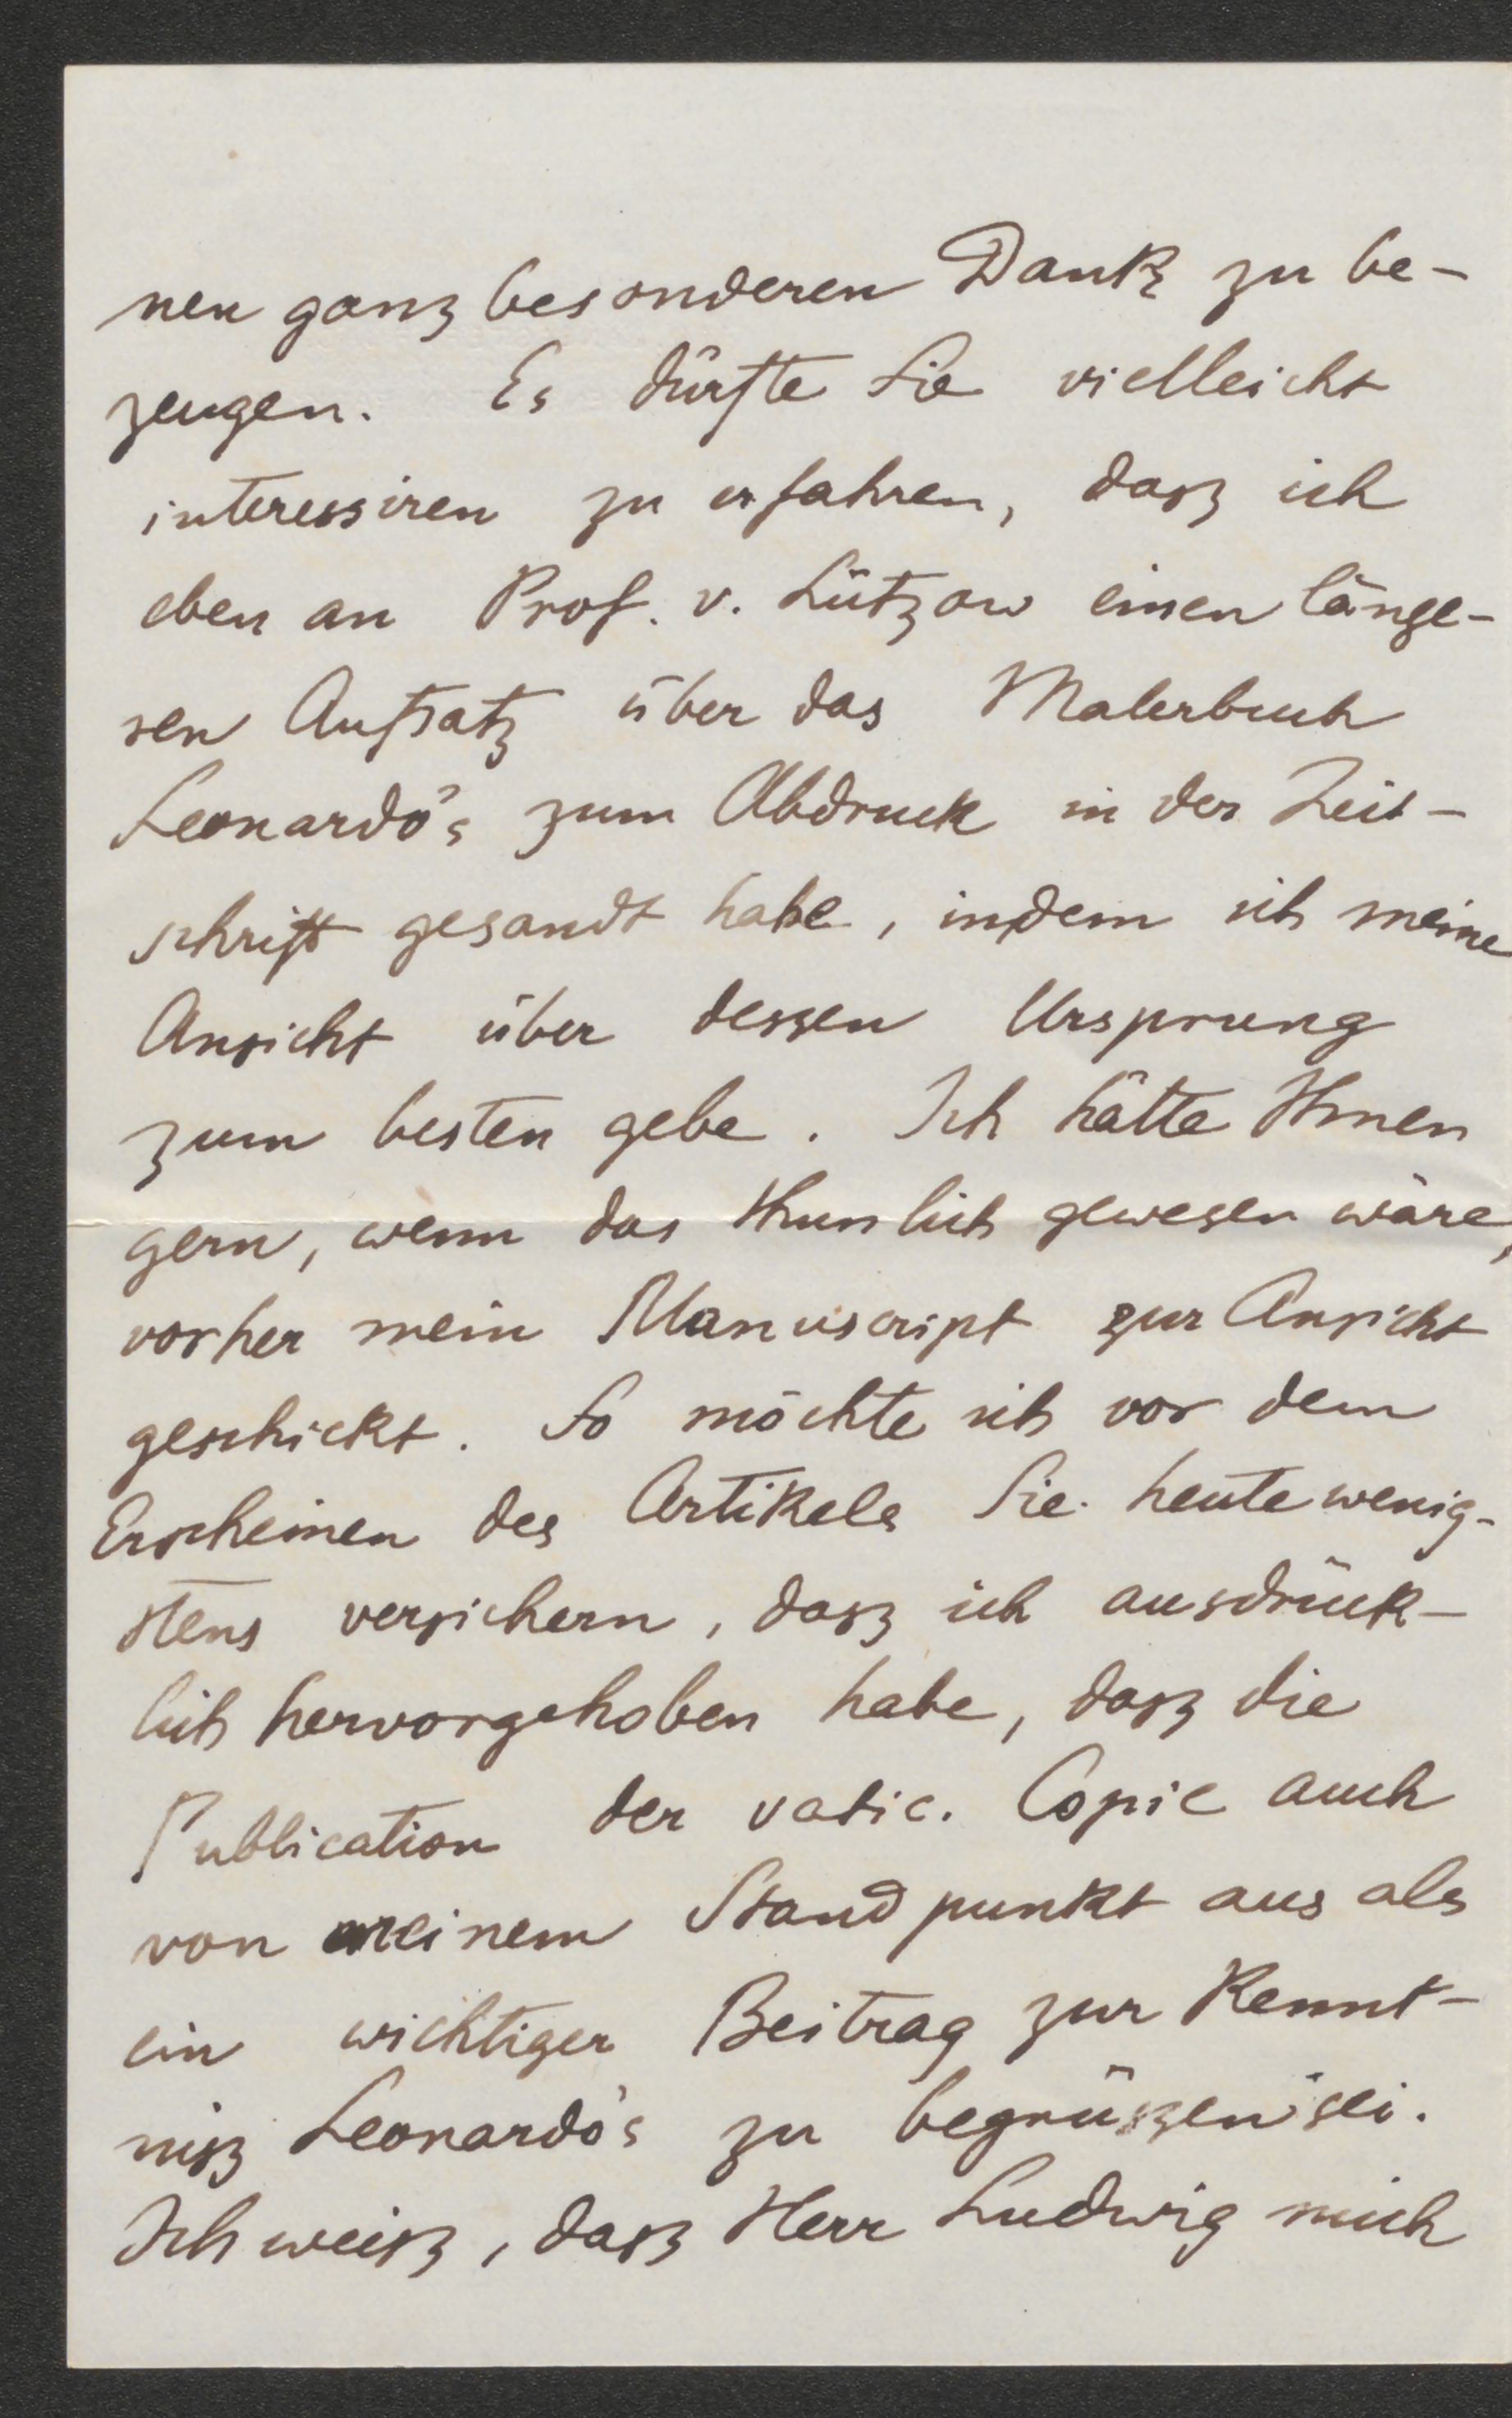 nen ganz besonderen Dank zu be-
zeugen. Es dürfte Sie vielleicht
interessiren zu erfahren, dasz ich
eben an Prof. v. Lützow einen länge-
ren Aufsatz über das Malerbuch
Leonardo's zum Abdruck in der Zeit-
schrift gesandt habe, indem ich meine
Ansicht über dessen Ursprung
zum besten gebe. Ich hätte Ihnen
gern, wenn das thunlich gewesen wäre,
vorher mein Manuscript zur Ansicht
geschickt. So möchte ich vor dem
Erscheinen des Artikels Sie heute wenig-
stens versichern, dasz ich ausdrück-
lich hervorgehoben habe, dasz die
Publication der vatic. Copie auch
von meinem Standpunkt aus als
ein wichtiger Beitrag zur Kennt-
nisz Leonardo's zu begrüszen sei.
Ich weisz, dasz Herr Ludwig mich